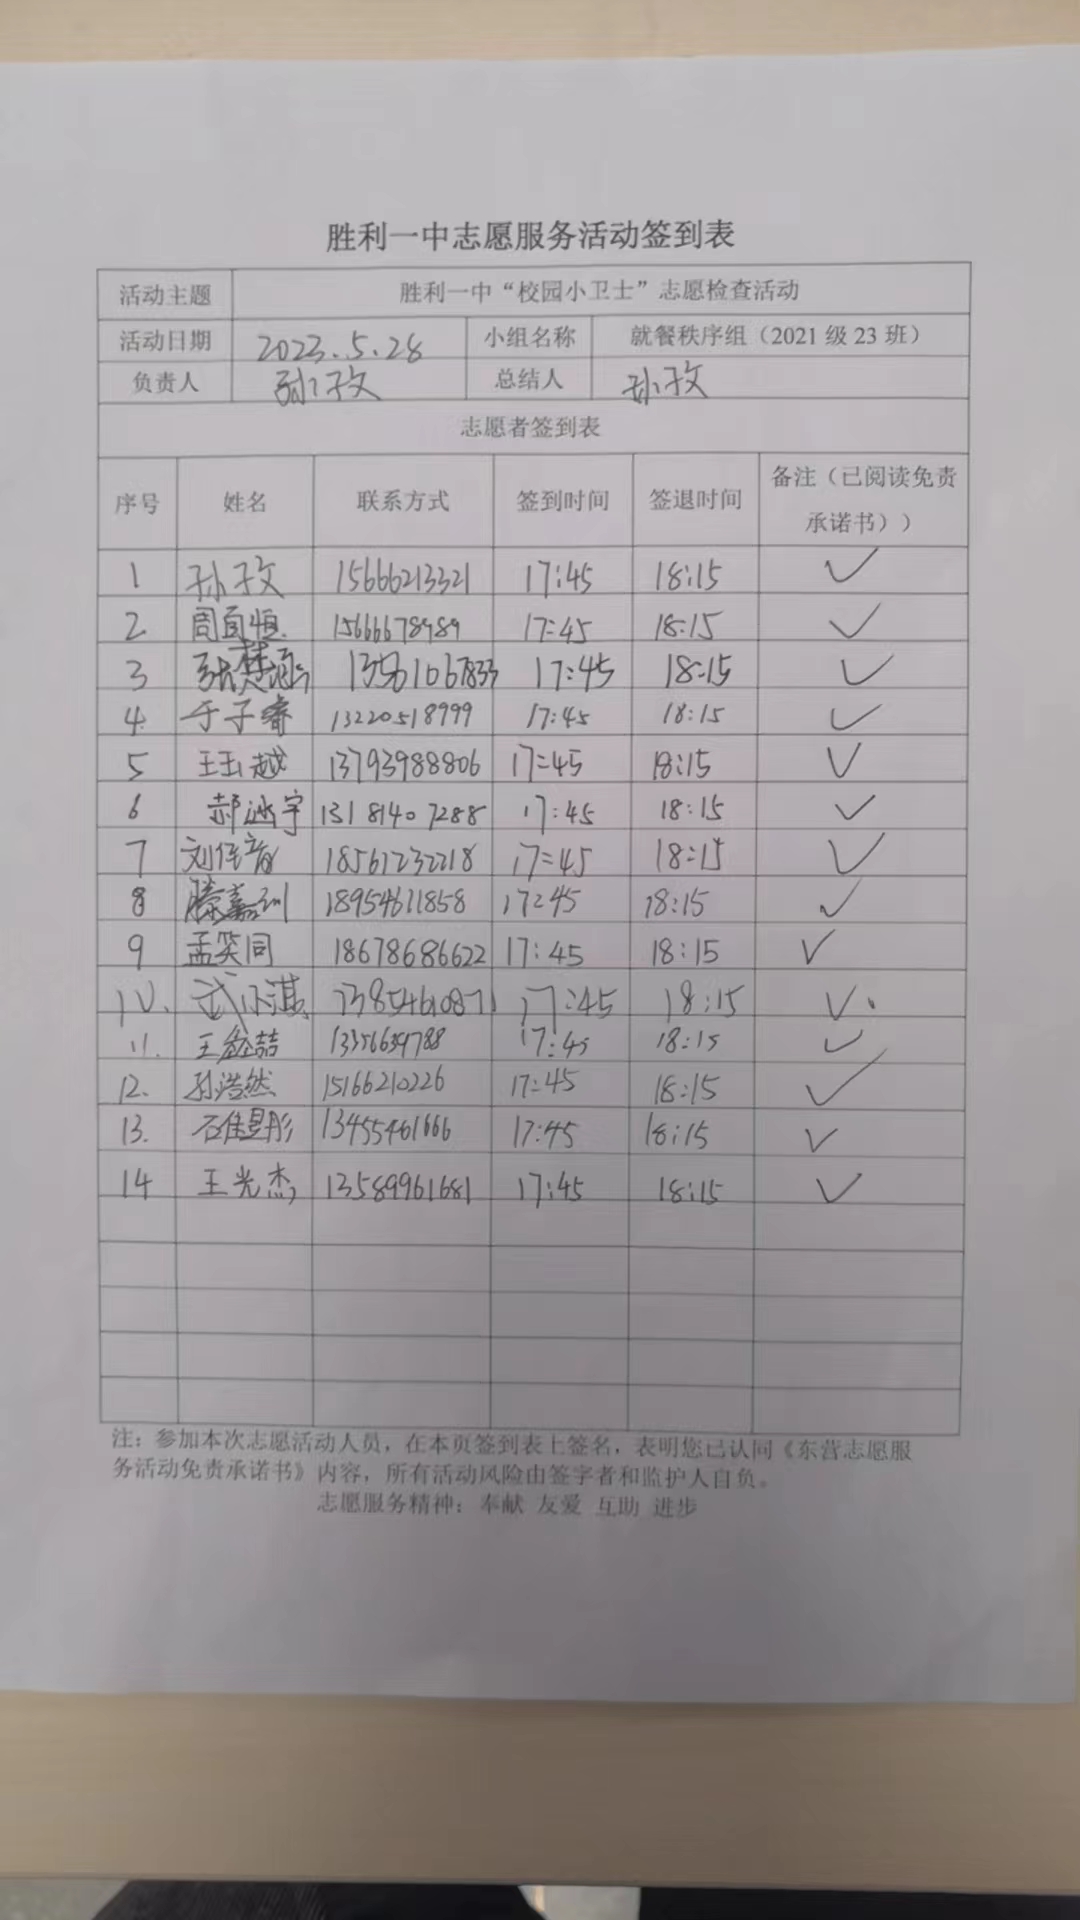 胜利一中志愿服务活动签到表
活动主题 胜利一中“校园小卫士”志愿检查活动
活动日期 2023.5.28 小组名称 就餐秩序组（2021 级 23 班）
负责人 孙孜 总结人 孙孜
志愿者签到表
序号 姓名 联系方式 签到时间 签退时间 备注（已阅读免责承诺书））
1 孙孜 15666213321 17:45 18:15 ✓
2 周 15666678989 17:45 18:15 ✓
3 张楚涵 13561067833 17:45 18:15 ✓
4 于子睿 13220518999 17:45 18:15 ✓
5 王玉越 13793988806 17:45 18:15 ✓
6 郝 宇 13181407288 17:45 18:15 ✓
7 刘佳音 18561232218 17:45 18:15 ✓
8 滕嘉 18954611858 17:45 18:15 ✓
9 孟笑同 18678686622 17:45 18:15 ✓
10. 武 13854610871 17:45 18:15 ✓
11. 王鑫喆 17:45 18:15 ✓
12. 孙浩然 15166210226 17:45 18:15 ✓
13. 石佳昱彤 13455461666 17:45 18:15 ✓
14 王光杰 13589961681 17:45 18:15 ✓
注：参加本次志愿活动人员，在本页签到表上签名，表明您已认同《东营志愿服
务活动免责承诺书》内容，所有活动风险由签字者和监护人自负。
志愿服务精神：奉献 友爱 互助 进步